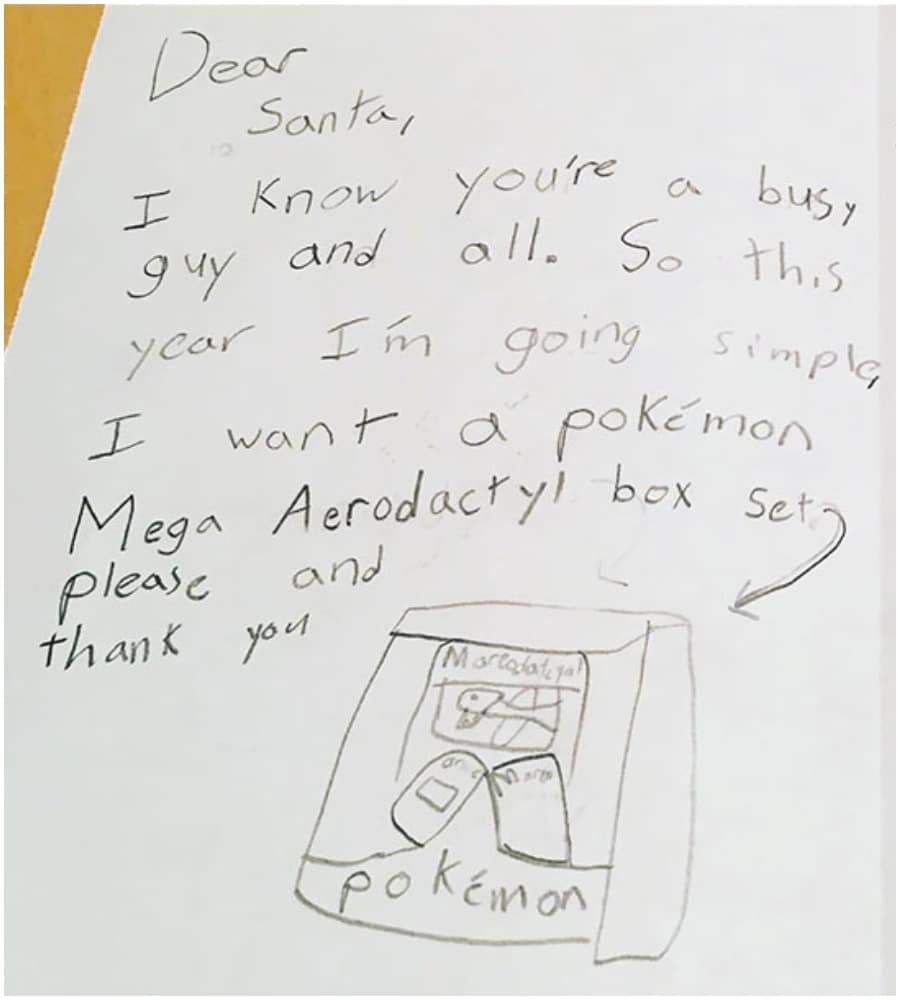 Dear
Santa,
I know you're a busy
guy and all. So this
year I'm going simple,
I want a pokémon
Mega Aerodactyl box set,
please and
thank you
pokémon